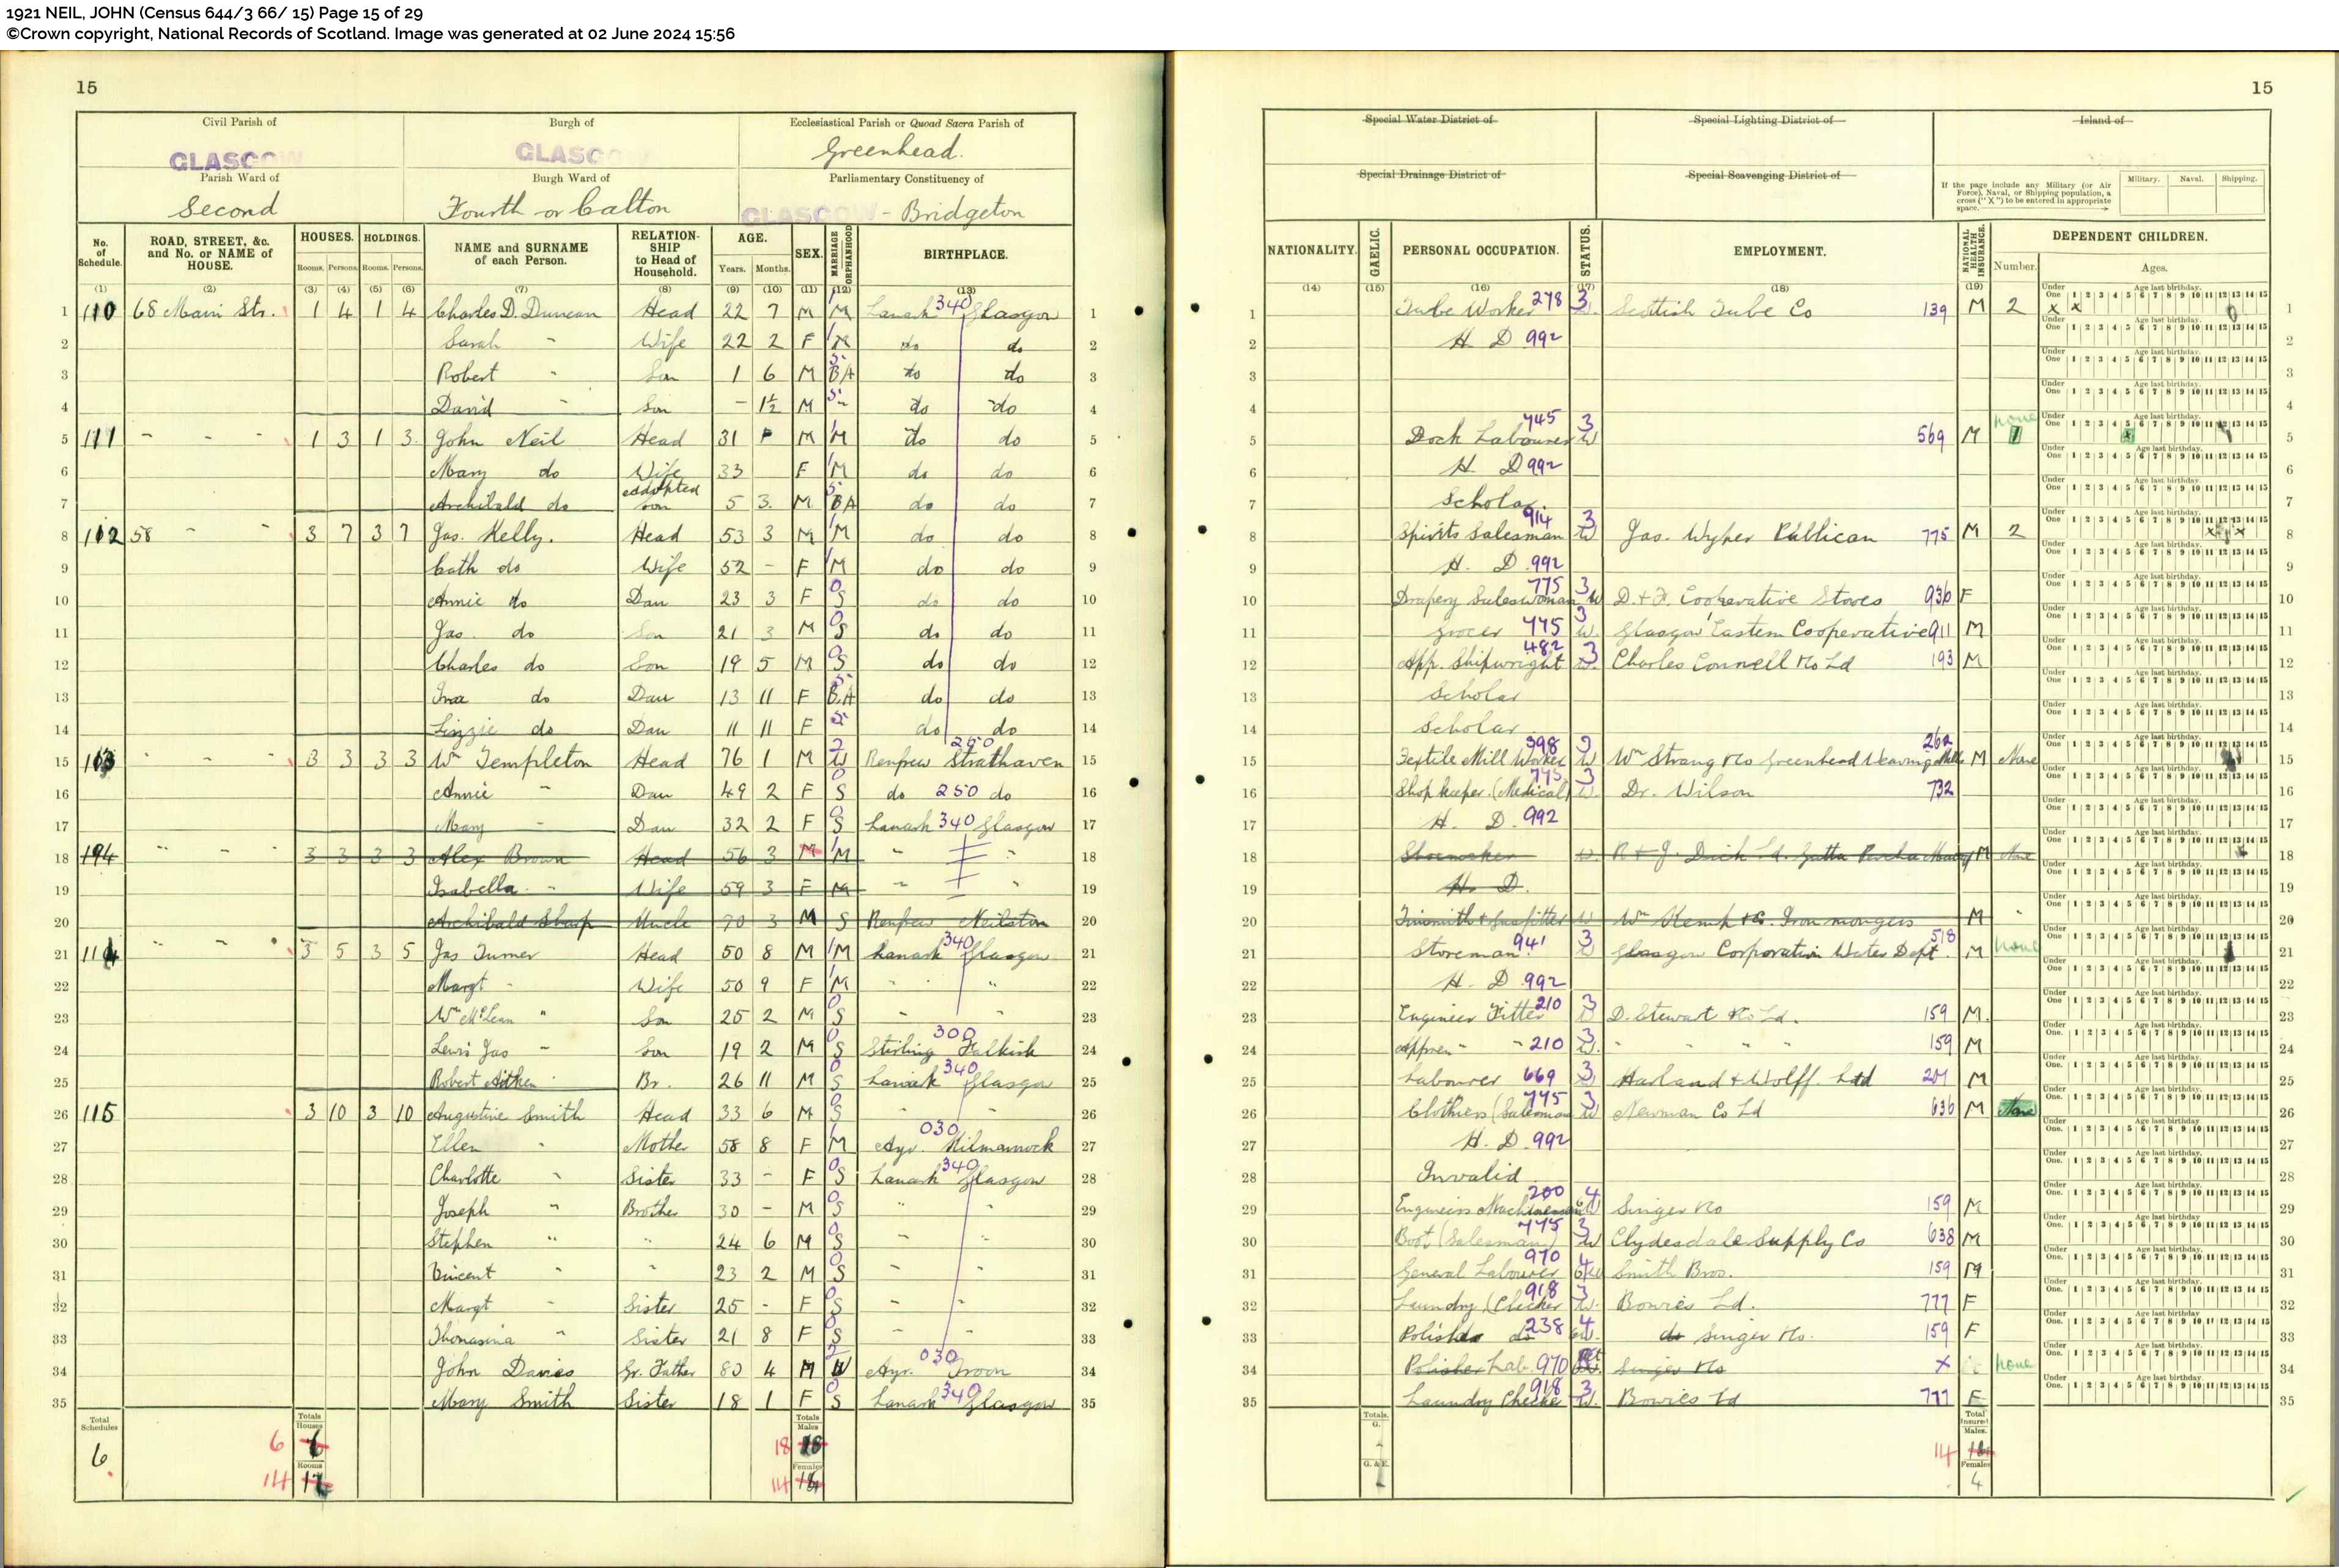 1921 NEIL, JOHN (Census 644/3 66/ 15) Page 15 of 29
©Crown copyright, National Records of Scotland. Image was generated at 02 June 2024 15:56
15
Civil Parish of Burgh of Ecclesiastical Parish or Quoad Sacra Parish of
GLASGOW GLASGOW Greenhead.
Parish Ward of Burgh Ward of Parliamentary Constituency of
Second Fourth or Calton GLASGOW - Bridgeton
No. of Schedule. ROAD, STREET, &c. and No. or NAME of HOUSE. HOUSES. HOLDINGS. NAME and SURNAME of each Person. RELATIONSHIP to Head of Household. AGE. SEX. MARRIAGE or ORPHANHOOD BIRTHPLACE.
Rooms. Persons. Rooms. Persons. Years. Months.
(1) (2) (3) (4) (5) (6) (7) (8) (9) (10) (11) (12) (13)
1 110 68 Main Str. 1 4 1 4 Charles D. Duncan Head 22 7 M M Lanark 340 Glasgow 1
2 Sarah " Wife 22 2 F M do do 2
3 Robert " Son 1 6 M BA do do 3
4 David " Son - 1½ M " do do 4
5 111 - - - 1 3 1 3 John Neil Head 31 M M do do 5
6 Mary do Wife 33 F M do do 6
7 Archibald do addopted son 5 3 M BA do do 7
8 112 58 - - 3 7 3 7 Jas. Kelly. Head 53 3 M M do do 8
9 Cath do Wife 52 - F M do do 9
10 Annie do Dau 23 3 F S do do 10
11 Jas. do Son 21 3 M S do do 11
12 Charles do Son 19 5 M S do do 12
13 Ina do Dau 13 11 F B.A do do 13
14 Lizzie do Dau 11 11 F " do do 14
15 113 - - 3 3 3 3 Wm Templeton Head 76 1 M W Renfrew 250 Strathaven 15
16 Annie " Dau 49 2 F S do 250 do 16
17 Mary - Dau 32 2 F S Lanark 340 Glasgow 17
18 114 " - " 3 3 3 3 Alex Brown Head 56 3 M M " " 18
19 Isabella " Wife 59 3 F M " " 19
20 Archibald Sharp Uncle 70 3 M S Renfrew Neilston 20
21 114 " " " 3 5 3 5 Jas Turner Head 50 8 M M Lanark 340 Glasgow 21
22 Margt - Wife 50 9 F M " " 22
23 Wm McLean " Son 25 2 M S " " 23
24 Lewis Jas " Son 19 2 M S Stirling 300 Falkirk 24
25 Robert Aitken Br. 26 11 M S Lanark 340 Glasgow 25
26 115 3 10 3 10 Augustine Smith Head 33 6 M S " " 26
27 Ellen " Mother 58 8 F M Ayr. 030 Kilmarnock 27
28 Charlotte " Sister 33 - F S Lanark 340 Glasgow 28
29 Joseph " Brother 30 - M S " " 29
30 Stephen " " 24 6 M S " " 30
31 Vincent " " 23 2 M S " " 31
32 Margt " Sister 25 - F S " " 32
33 Thomasina " Sister 21 8 F S " " 33
34 John Davies Gr. Father 80 4 M W Ayr. 030 Troon 34
35 Mary Smith Sister 18 1 F S Lanark 340 Glasgow 35
Total Schedules Totals Houses Totals Males
6 6 18
Rooms Females
14 14
15
Special Water District of Special Lighting District of Island of
Special Drainage District of Special Scavenging District of
If the page include any Military (or Air Force), Naval, or Shipping population, a cross ("X") to be entered in appropriate space. Military. Naval. Shipping.
NATIONALITY. GAELIC. PERSONAL OCCUPATION. STATUS. EMPLOYMENT. NATIONAL HEALTH INSURANCE. DEPENDENT CHILDREN.
Number. Ages.
(14) (15) (16) (17) (18) (19)
Under One Age last birthday. 1 2 3 4 5 6 7 8 9 10 11 12 13 14 15
1 Tube Worker 278 3 Scottish Tube Co 139 M 2 x x 1
2 H D 992 2
3 3
4 4
5 Dock Labourer 945 3 W 569 M none 1 5
6 H. D 992 6
7 Scholar 7
8 Spirits Salesman 914 3 W Jas. Wypher Publican 775 M 2 8
9 H. D. 992 9
10 Drapery Saleswoman 775 3 W D. & F. Cooperative Stores 936 F 10
11 Grocer 775 3 W. Glasgow Eastern Cooperative 911 M 11
12 App. Shipwright 482 3 W. Charles Connell & Co Ld 193 M 12
13 Scholar 13
14 Scholar 14
15 Textile Mill Worker 398 W Wm Strang & Co Greenhead Weaving Mills 262 M None 15
16 Shop keeper. (Medical) 775 3 W. Dr. Wilson 732 16
17 H. D. 992 17
18 Shoemaker W. R & J. Dick Ld. Gutta Percha M None 18
19 H. D. 19
20 Tinsmith & Gasfitter W Wm Kemp & Co. Ironmongers M " 20
21 Storeman 941 3 W Glasgow Corporation Water Dept. 518 M none 21
22 H. D 992 22
23 Engineer Fitter 210 3 W D. Stewart & Co Ld. 159 M. 23
24 Appren " " 210 3 W. " " " " 159 M 24
25 Labourer 669 3 Harland & Wolff. Ltd 201 M 25
26 Clothiers (Salesman 775 3 W Newman Co Ld 636 M None 26
27 H. D. 992 27
28 Invalid 28
29 Engineers Machineman 200 4 Singer & Co 159 M 29
30 Boot (Salesman) 775 3 W Clydesdale Supply Co 638 M 30
31 General Labourer 970 4 Smith Bros. 159 M 31
32 Laundry (Checker 918 3 W. Bowies Ld. 777 F 32
33 Polisher do 238 4 do Singer & Co. 159 F 33
34 Polisher Lab. 970 Ret Singer & Co X none 34
35 Laundry Checker 918 3 W. Bowies Ld 777 F 35
Totals. G. Total Insured Males.
14
G. & E. Females
4